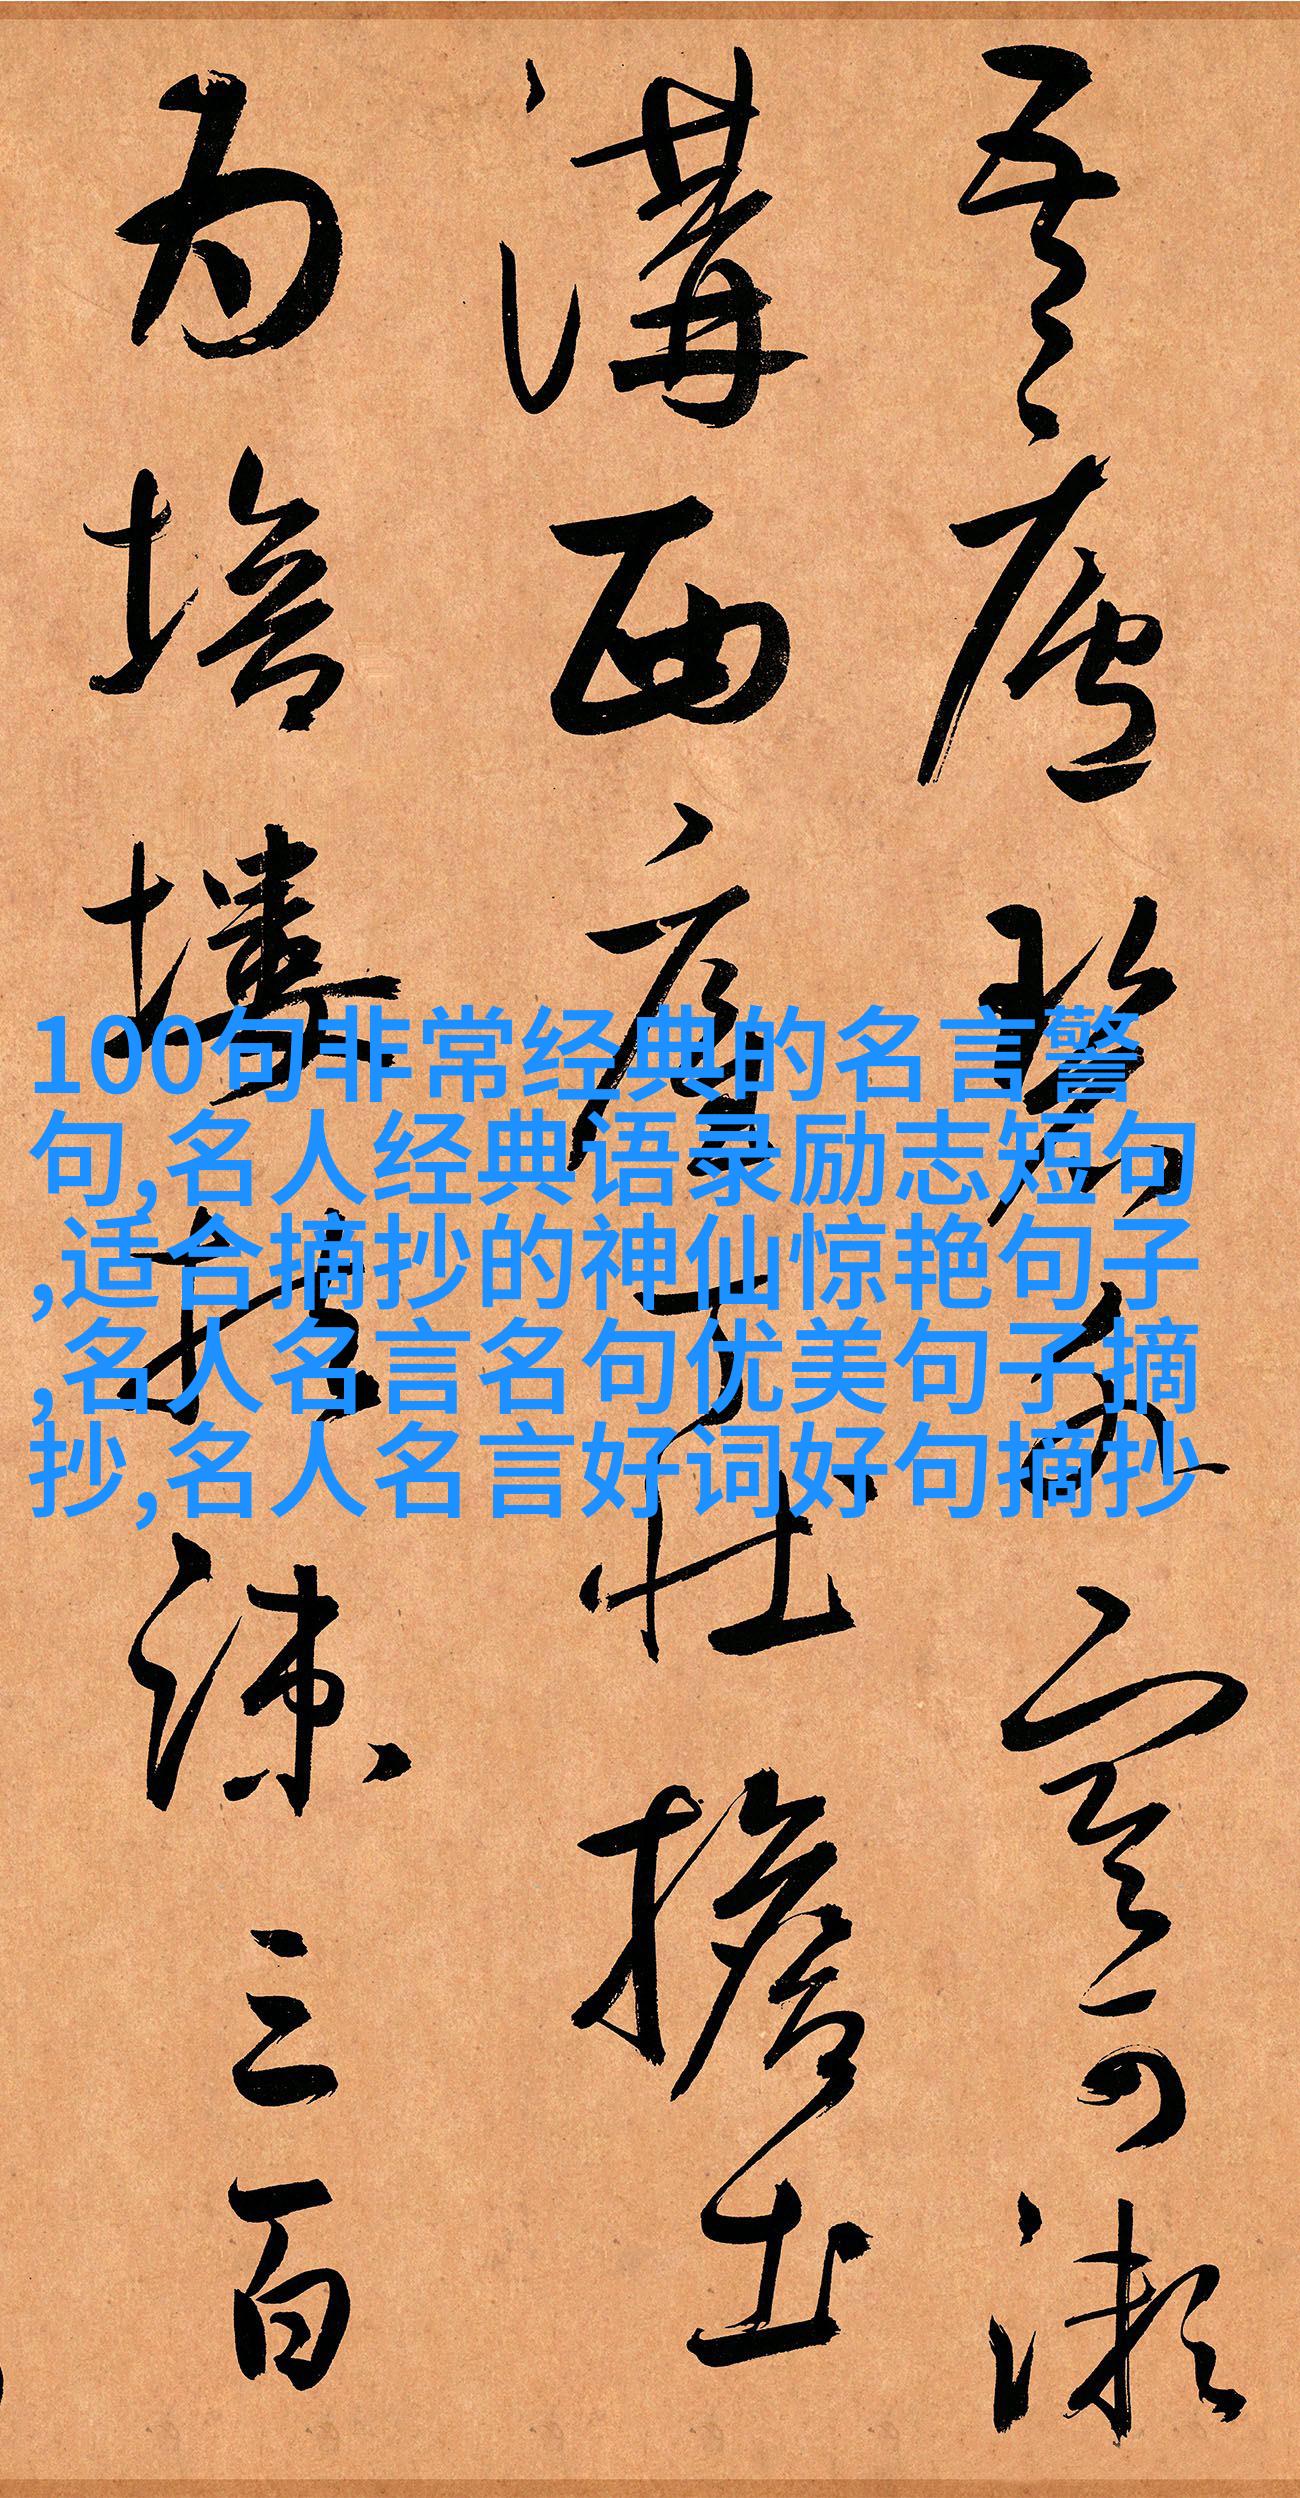 100句非常经典的名言警
句,名人经典语录励志短句
,适合摘抄的神仙惊艳句子
,名人名言名句优美句子摘
抄,名人名言好词好句摘抄
吾廬 可漱
溝西 擔土
为培塿 三百